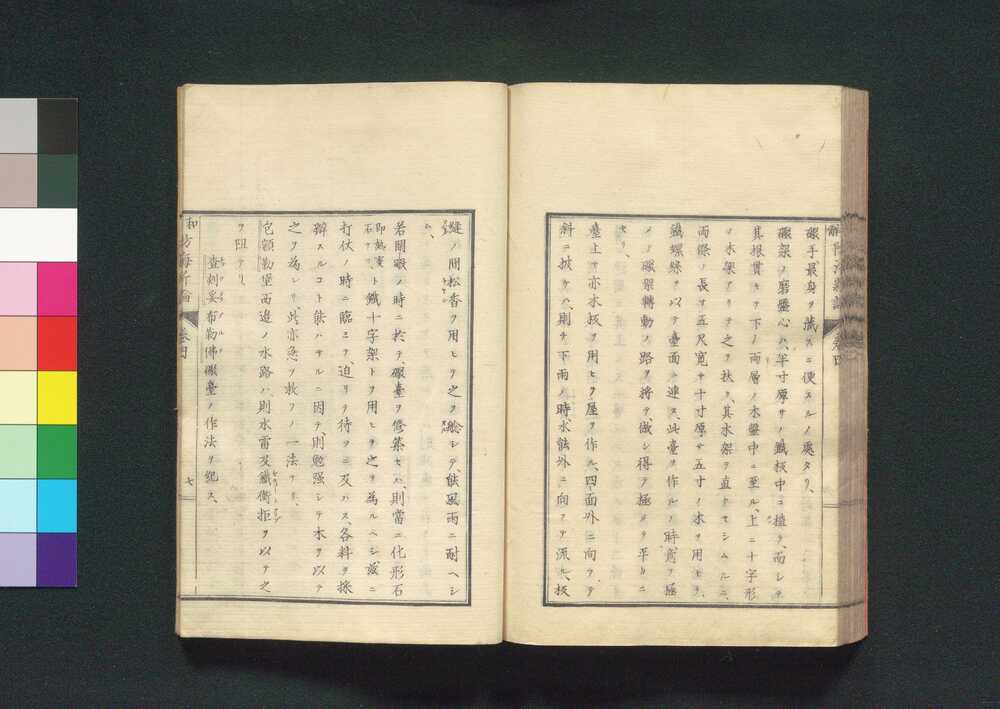 礮手最身ヲ藏スニ便スルノ處タリ、
礮架ノ磨盤心ハ、半寸厚サノ鐵板中ニ揷ク、而シテ
其根貫キテ下ノ兩層ノ木盤中ニ至ル、上ニ十字形
ノ木架アリテ之ヲ扶ク、其木架ヲ直クセシムルニ、
兩條ノ長サ五尺寬サ十寸厚サ五寸ノ木ヲ用ヒテ、
鐵螺絲ヲ以テ臺面ニ連ス、此臺ヲ作ルノ時貴ヲ極
メノ礮架轉動ノ路ヲ將テ、做シ得テ極メテ平カニ
セリ、
臺上ヲ亦木板ヲ用ヒテ屋ヲ作ル、四面外ニ向ヲテ
斜ニ披ケハ、則チ下雨ノ時水能外ニ向ヲテ流ル、板
縫ノ間松香ヲ用ヒテ之ヲ艌シテ、能風雨ニ耐ヘシ
ム、
若開礮ノ時ニ於テ、礮臺ヲ修築セハ、則當ニ化形石
即熱變石ヲフト鐵十字架トヲ用ヒテ之ヲ為ルヘシ、或ニ
打仗ノ時ニ臨ミテ、迫リテ待ツニ及ハス、各料ヲ採
辦スルコト能ハサルニ因テ、則勉强シテ木ヲ以テ
之ヲ為シテ、此亦急ヲ救フノ一法ナリ、
包額勒堡西邉ノ水路ハ、則水雷及鐵衝拒ヲ以テ之
ヲ阻テリ
査刺妥布勒佛礮臺ノ作法ヲ紀ス、
卷四
七